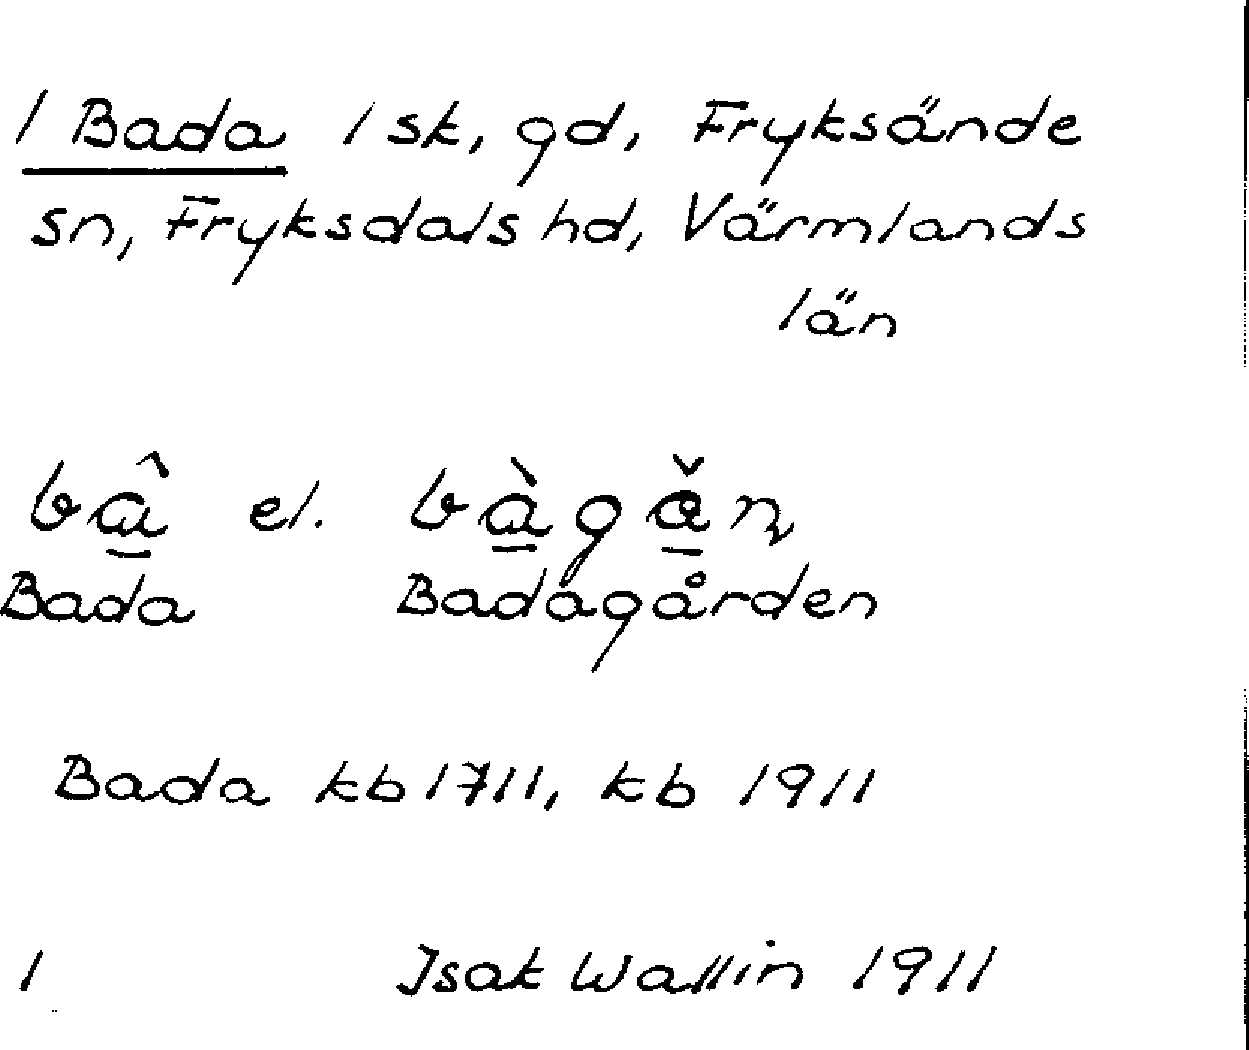 1 Bada 1 sk, gd, Fryksände
sn, Fryksdals hd, Värmlands
län
bâ el. bàgǎn
Bada Badagården
Bada kb 1711, kb 1911
1 Isak Wallin 1911